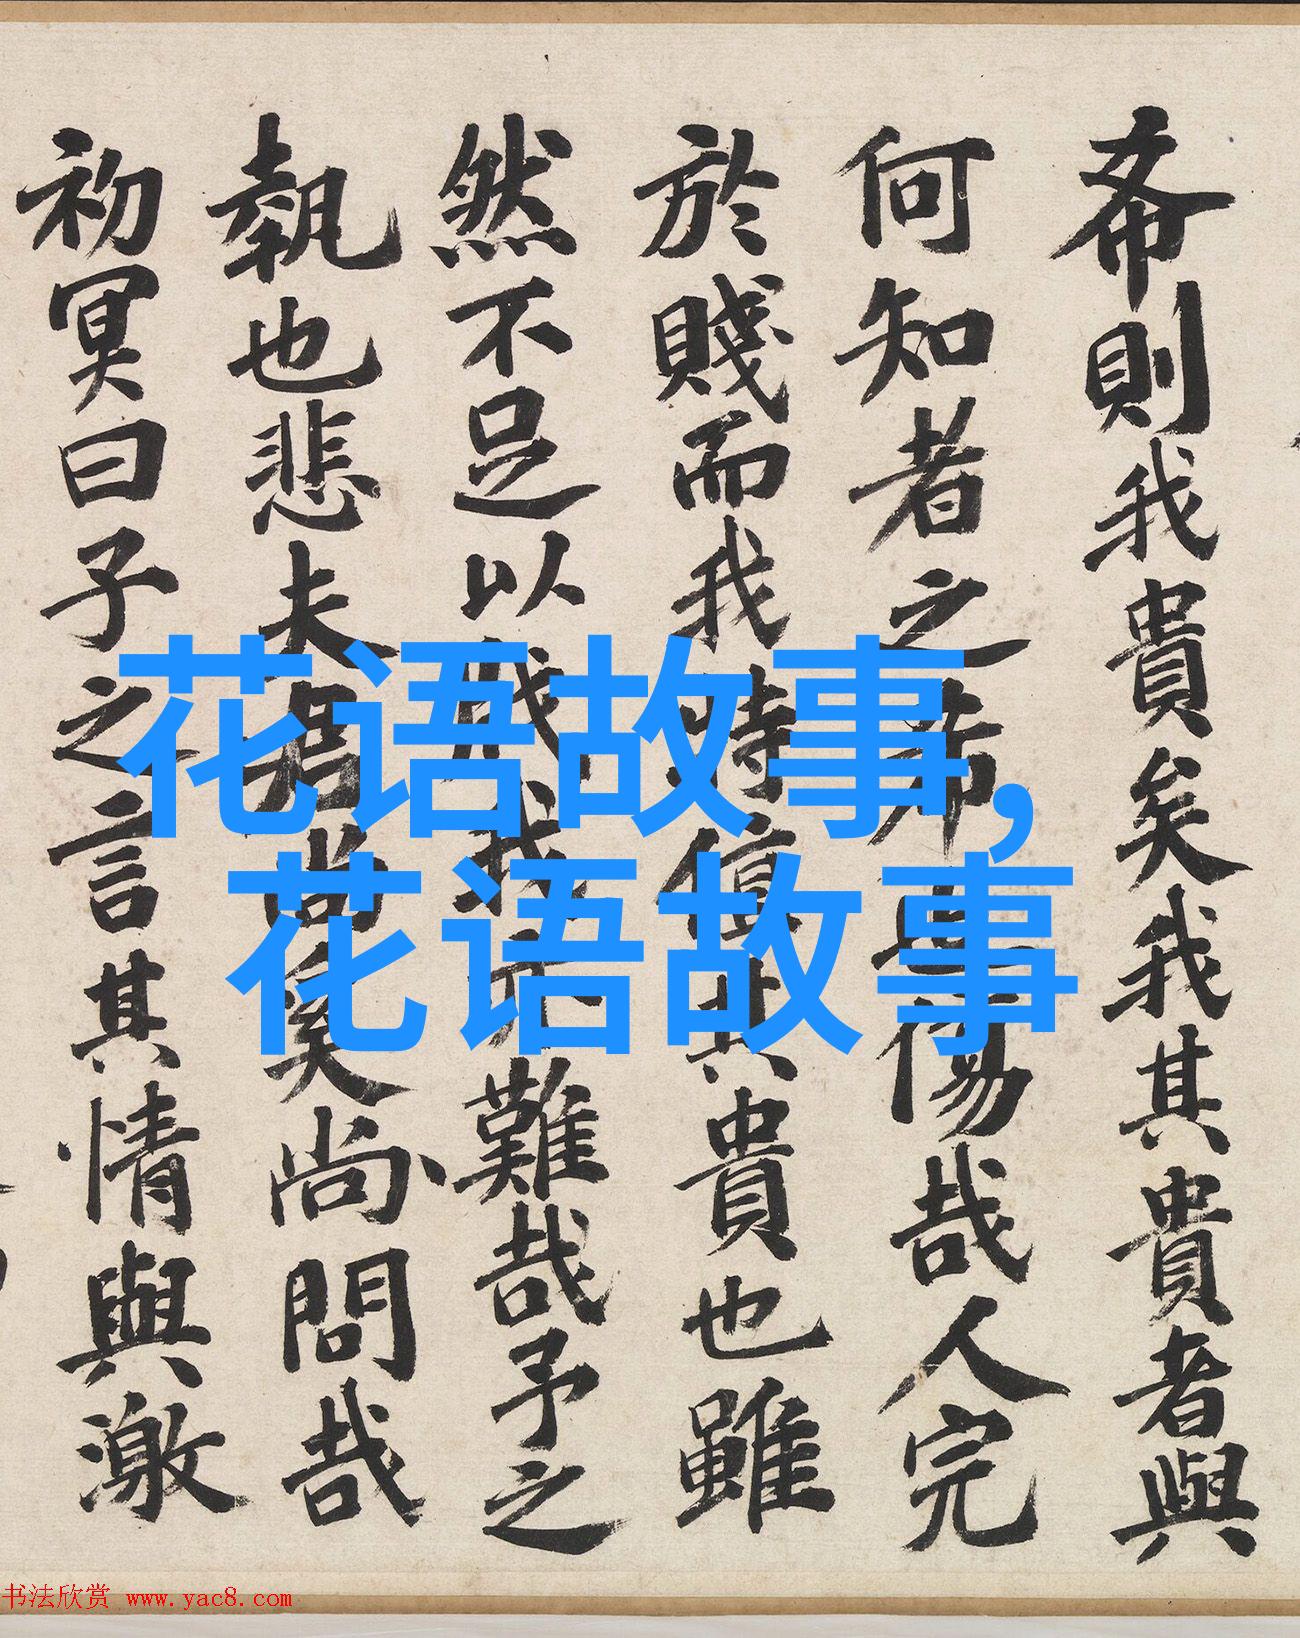 希則我貴矣我其貴者與
何知者之希傷哉人完
於賤而我時值其貴也雖
然不足以我難哉予之
執也悲夫尚矣尚問哉
初冥曰子之言其情與激
花语故事,
花语故事
书法欣赏 www.yac8.com